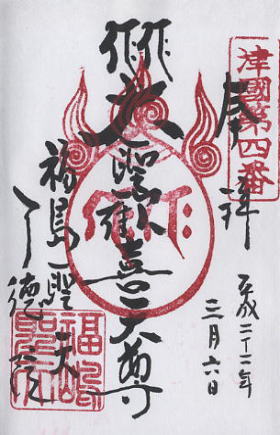 津國第四番
奉拝
平成二十二年
三月六日
大聖歓喜天
福島聖天
了徳院